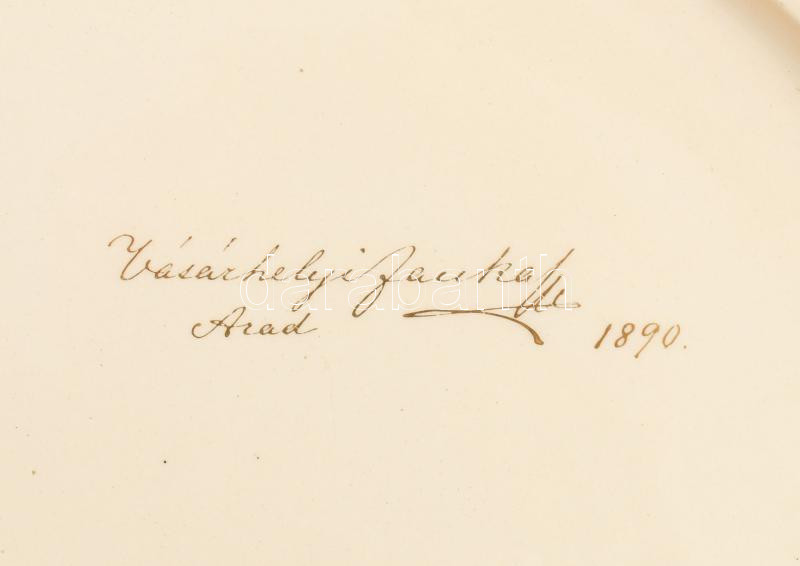 Vásárhelyi Janka
Arad
1890.
darabanth